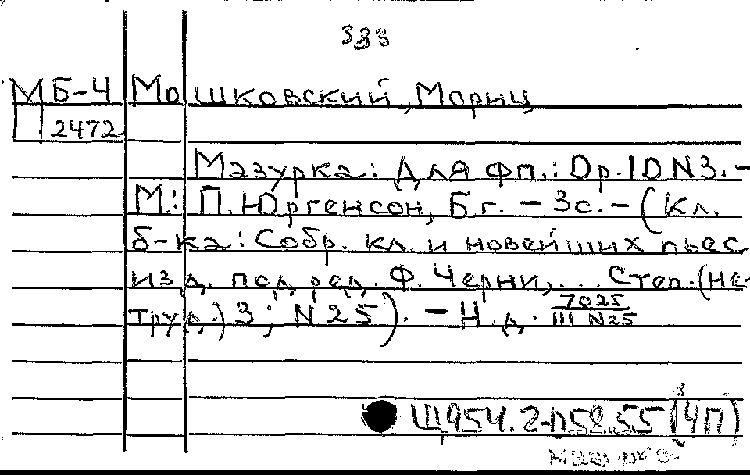 333
МБ-4 Мошковский, Мориц
2472
Мазурка: Для фп.: Op.10 N3. –
М.: П. Юргенсон, Б.г. – 3с. – (Кл.
б-ка: Собр. кл. и новейших пьес
изд. под ред. Ф. Черни, ... Степ. (не-
труд.) 3; N25). – Н.д. 7025
III N25
Щ954.2-п58.55 (4П)